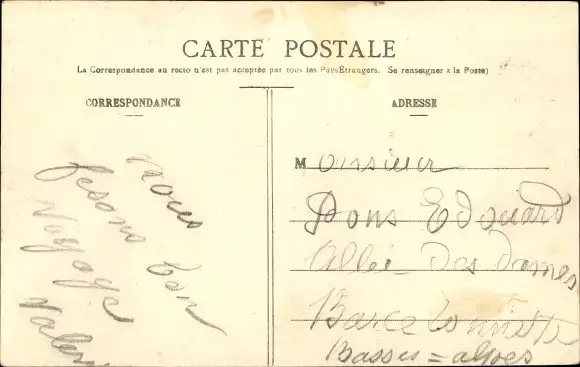 CARTE POSTALE
La Correspondance au recto n'est pas acceptée par tous les Pays Etrangers. Se renseigner à la Poste)
CORRESPONDANCE
nous
fesons bon
Voyage
Valen
ADRESSE
Monsieur
Pons Edouard
Allée Des Dames
Barcelonnette
Basses=alpes